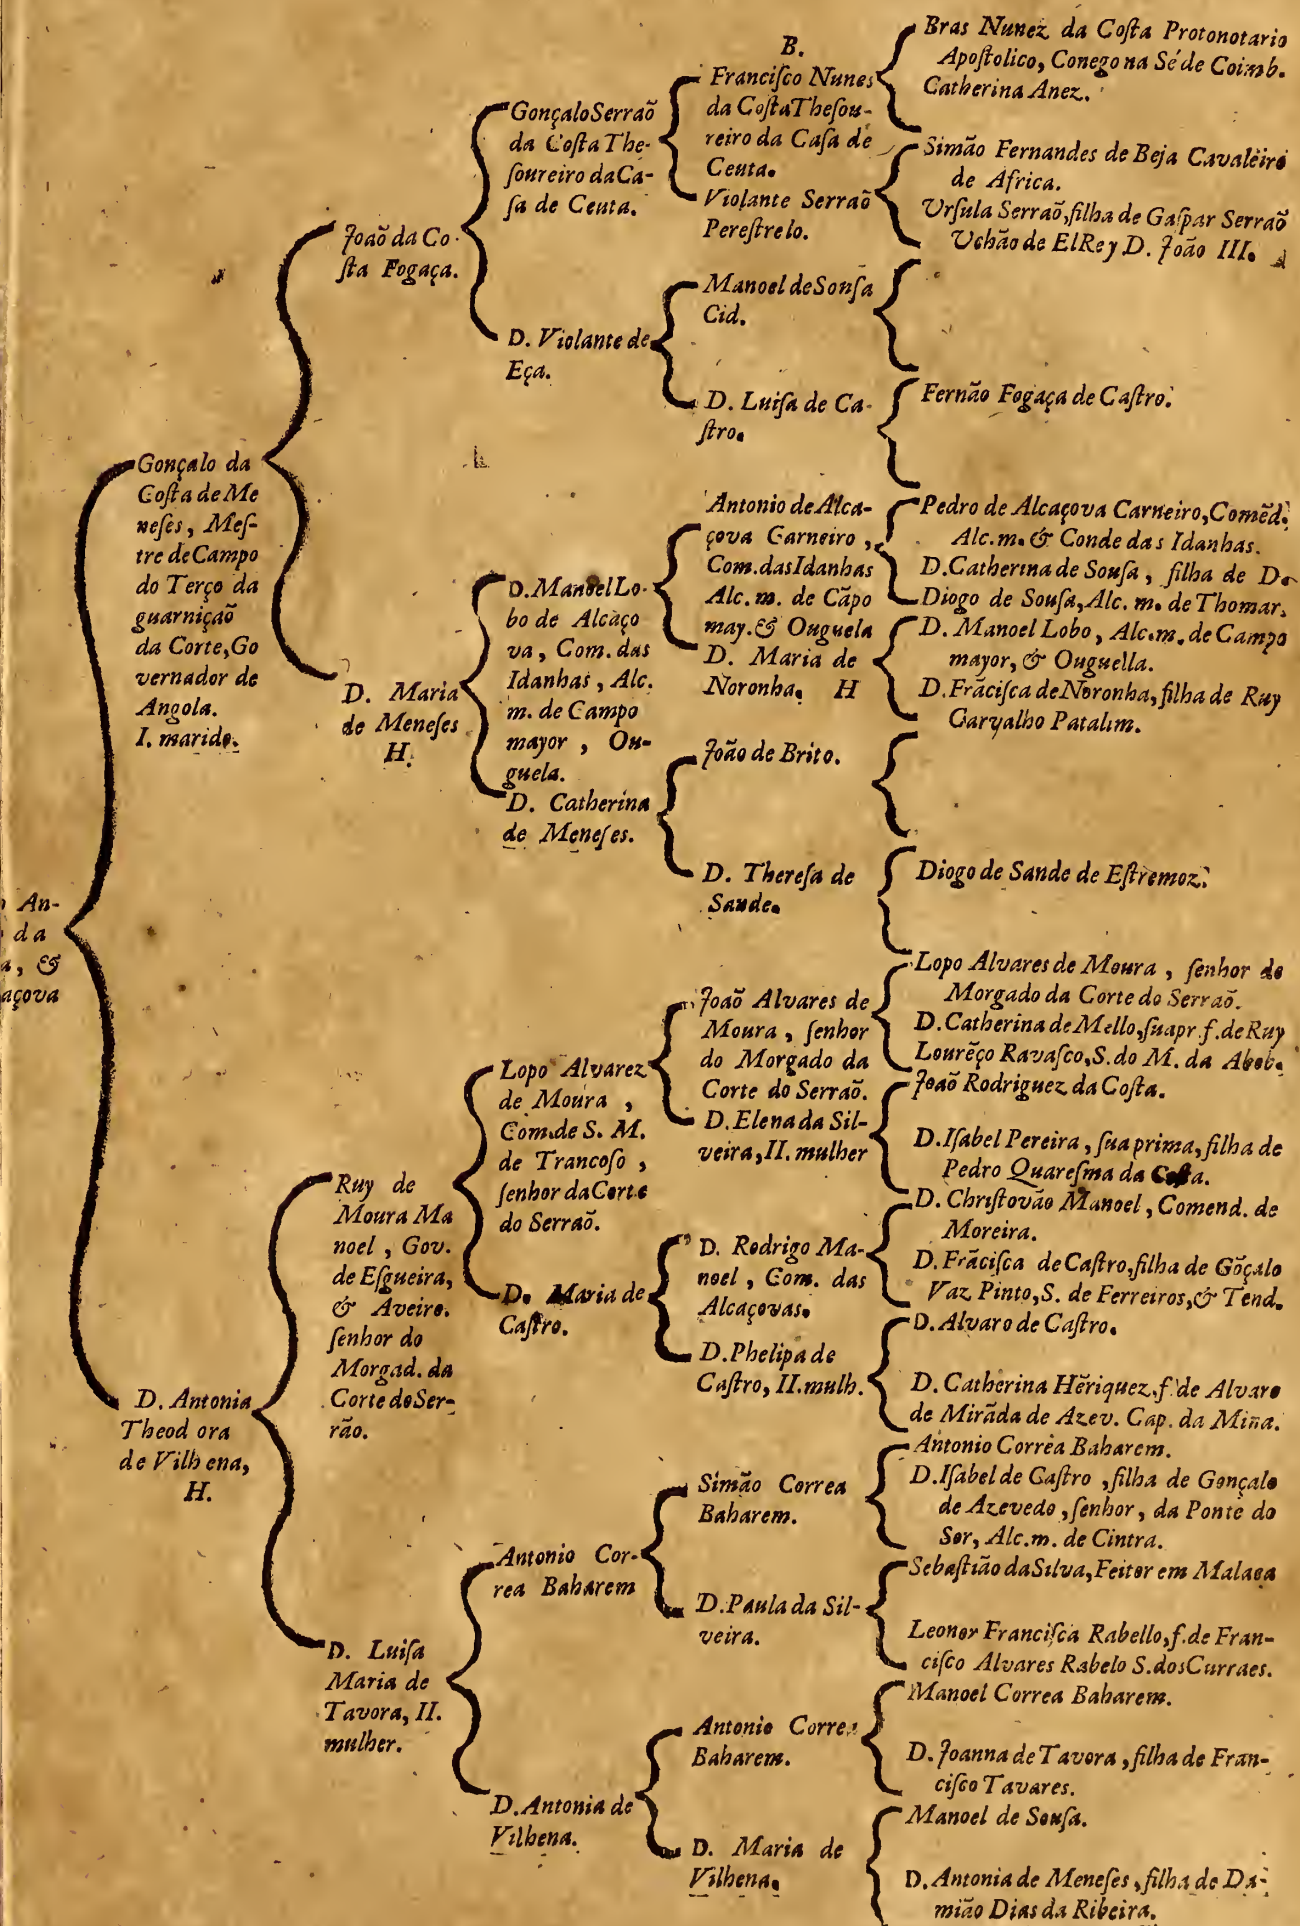 An-
da
a, &
açova
Gonçalo da
Coſta de Me
neſes, Meſ-
tre de Campo
do Terço da
guarniçaõ
da Corte, Go
vernador de
Angola.
I. marido.
D. Antonia
Theod ora
de Vilhena,
H.
Joaõ da Co-
ſta Fogaça.
D. Maria
de Meneſes
H.
Ruy de
Moura Ma
noel, Gov.
de Eſgueira,
& Aveiro.
ſenhor do
Morgad. da
Corte do Ser-
rão.
D. Luiſa
Maria de
Tavora, II.
mulher.
Gonçalo Serraõ
da Coſta The-
ſoureiro da Ca-
ſa de Ceuta.
D. Violante de
Eça.
D. Manoel Lo-
bo de Alcaço
va, Com. das
Idanhas, Alc.
m. de Campo
mayor, Ou-
guela.
D. Catherina
de Meneſes.
Lopo Alvarez
de Moura,
Com. de S. M.
de Trancoſo,
ſenhor da Corte
do Serraõ.
D. Maria de
Caſtro.
Antonio Cor-
rea Baharem
D. Antonia de
Vilhena.
B.
Franciſco Nunes
da Coſta Theſou-
reiro da Caſa de
Ceuta.
Violante Serraõ
Pereſtrelo.
Manoel de Souſa
Cid.
D. Luiſa de Ca-
ſtro.
Antonio de Alca-
çova Carneiro,
Com. das Idanhas
Alc. m. de Cãpo
may. & Ouguela
D. Maria de
Noronha. H
João de Brito.
D. Thereſa de
Sande.
Joaõ Alvares de
Moura, ſenhor
do Morgado da
Corte do Serraõ.
D. Elena da Sil-
veira, II. mulher
D. Rodrigo Ma-
noel, Com. das
Alcaçovas.
D. Phelipa de
Caſtro, II. mulh.
Simão Correa
Baharem.
D. Paula da Sil-
veira.
Antonio Correa
Baharem.
D. Maria de
Vilhena.
Bras Nunez da Coſta Protonotario
Apoſtolico, Conego na Sé de Coimb.
Catherina Anez.
Simão Fernandes de Beja Cavaleiro
de Africa.
Urſula Serraõ, filha de Gaſpar Serraõ
Uchão de ElRey D. João III.
Fernão Fogaça de Caſtro.
Pedro de Alcaçova Carneiro, Comẽd.
Alc. m. & Conde das Idanhas.
D. Catherina de Souſa, filha de D.
Diogo de Souſa, Alc. m. de Thomar.
D. Manoel Lobo, Alc. m. de Campo
mayor, & Ouguella.
D. Frãciſca de Noronha, filha de Ruy
Carvalho Patalim.
Diogo de Sande de Eſtremoz.
Lopo Alvares de Moura, ſenhor do
Morgado da Corte do Serraõ.
D. Catherina de Mello, ſua pr. f. de Ruy
Lourẽço Ravaſco, S. do M. da Abob.
Joaõ Rodriguez da Coſta.
D. Iſabel Pereira, ſua prima, filha de
Pedro Quareſma da Coſta.
D. Chriſtovão Manoel, Comend. de
Moreira.
D. Frãciſca de Caſtro, filha de Gõçalo
Vaz Pinto, S. de Ferreiros, & Tend.
D. Alvaro de Caſtro.
D. Catherina Hẽriquez, f. de Alvaro
de Mirãda de Azev. Cap. da Mina.
Antonio Correa Baharem.
D. Iſabel de Caſtro, filha de Gonçalo
de Azevedo, ſenhor, da Ponte do
Sor, Alc. m. de Cintra.
Sebaſtião da Silva, Feitor em Malaca
Leonor Franciſca Rabello, f. de Fran-
ciſco Alvares Rabelo S. dos Curraes.
Manoel Correa Baharem.
D. Joanna de Tavora, filha de Fran-
ciſco Tavares.
Manoel de Souſa.
D. Antonia de Meneſes, filha de Da-
mião Dias da Ribeira.